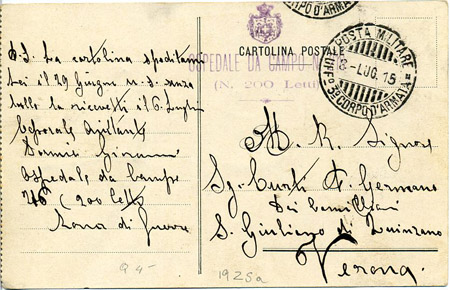 P.S. La cartolina speditami
Lei il 29 Giugno u. s. senza
bollo la ricevetti il 6 Luglio
Caporale Aiutante
Giovanni
Ospedale da Campo
(200 Letti)
Zona di Guerra
CARTOLINA POSTALE
OSPEDALE DA CAMPO N.
(N. 200 Letti)
CORPO D'ARMATA
POSTA MILITARE
8-LUG.15
UFF° 3° CORPO D'ARMATA
M. R. Signor
Sg. Curti F. Germano
Dei Camilliani
S. Giuliano di Quinzano
Verona
Q 4-
1925a